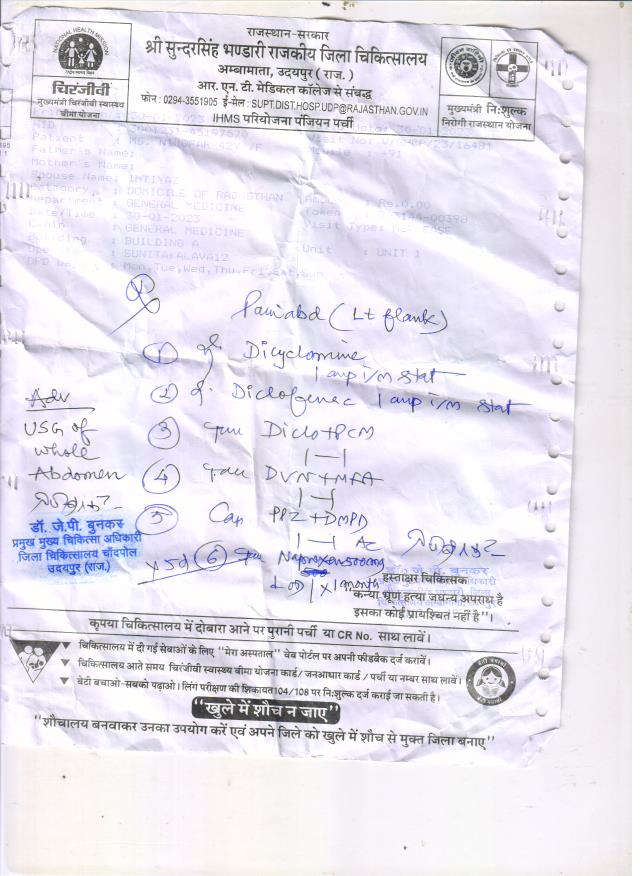 राजस्थान-सरकार
श्री सुन्दरसिंह भण्डारी राजकीय जिला चिकित्सालय
अम्बामाता, उदयपुर ( राज. )
आर. एन. टी. मेडिकल कॉलेज से संबद्ध
फोन : 0294-3551905 ई-मेल : SUPT.DIST.HOSP.UDP@RAJASTHAN.GOV.IN
IHMS परियोजना पंजियन पर्ची
NATIONAL HEALTH MISSION
चिरंजीवी
मुख्यमंत्री चिरंजीवी स्वास्थ्य
बीमा योजना
मुख्यमंत्री नि:शुल्क
निरोगी राजस्थान योजना
Father's Name:
Mother's Name:
Spouse Name: IMTIYAZ
Category : DOMICILE OF RAJASTHAN
Rs.0.00
Department : GENERAL MEDICINE
Token
Date/Time : 30-01-2023
Visit Type:
GENERAL MEDICINE
Building : BUILDING A
Unit : UNIT 1
Mon,Tue,Wed,Thu,Fri,Sat,Sun
Pain abd (Lt flank)
1 Dicyclomine
1 amp i/m stat
2 Diclofenac 1 amp i/m stat
Adv
USG of
whole
Abdomen
3 Diclo+PCM
1—1
4 DVN+MFA
1—1
5 Cap PPZ+DMPD
1—1 AC
x 5d
6 Naproxen 500mg
1 OD / x 1 month
डॉ. जे.पी. बुनकर
प्रमुख मुख्य चिकित्सा अधिकारी
जिला चिकित्सालय चाँदपोल
उदयपुर (राज.)
हस्ताक्षर चिकित्सक
कन्या भ्रूण हत्या जघन्य अपराध है
इसका कोई प्रायश्चित नहीं है"।
कृपया चिकित्सालय में दोबारा आने पर पुरानी पर्ची या CR No. साथ लावें।
चिकित्सालय में दी गई सेवाओं के लिए "मेरा अस्पताल" वेब पोर्टल पर अपनी फीडबैक दर्ज करावें।
चिकित्सालय आते समय चिरंजीवी स्वास्थ्य बीमा योजना कार्ड/ जनआधार कार्ड / पर्ची या नम्बर साथ लावें।
बेटी बचाओ-सबको पढ़ाओ। लिंग परीक्षण की शिकायत 104/108 पर नि:शुल्क दर्ज कराई जा सकती है।
"खुले में शौच न जाए"
"शौचालय बनवाकर उनका उपयोग करें एवं अपने जिले को खुले में शौच से मुक्त जिला बनाए"